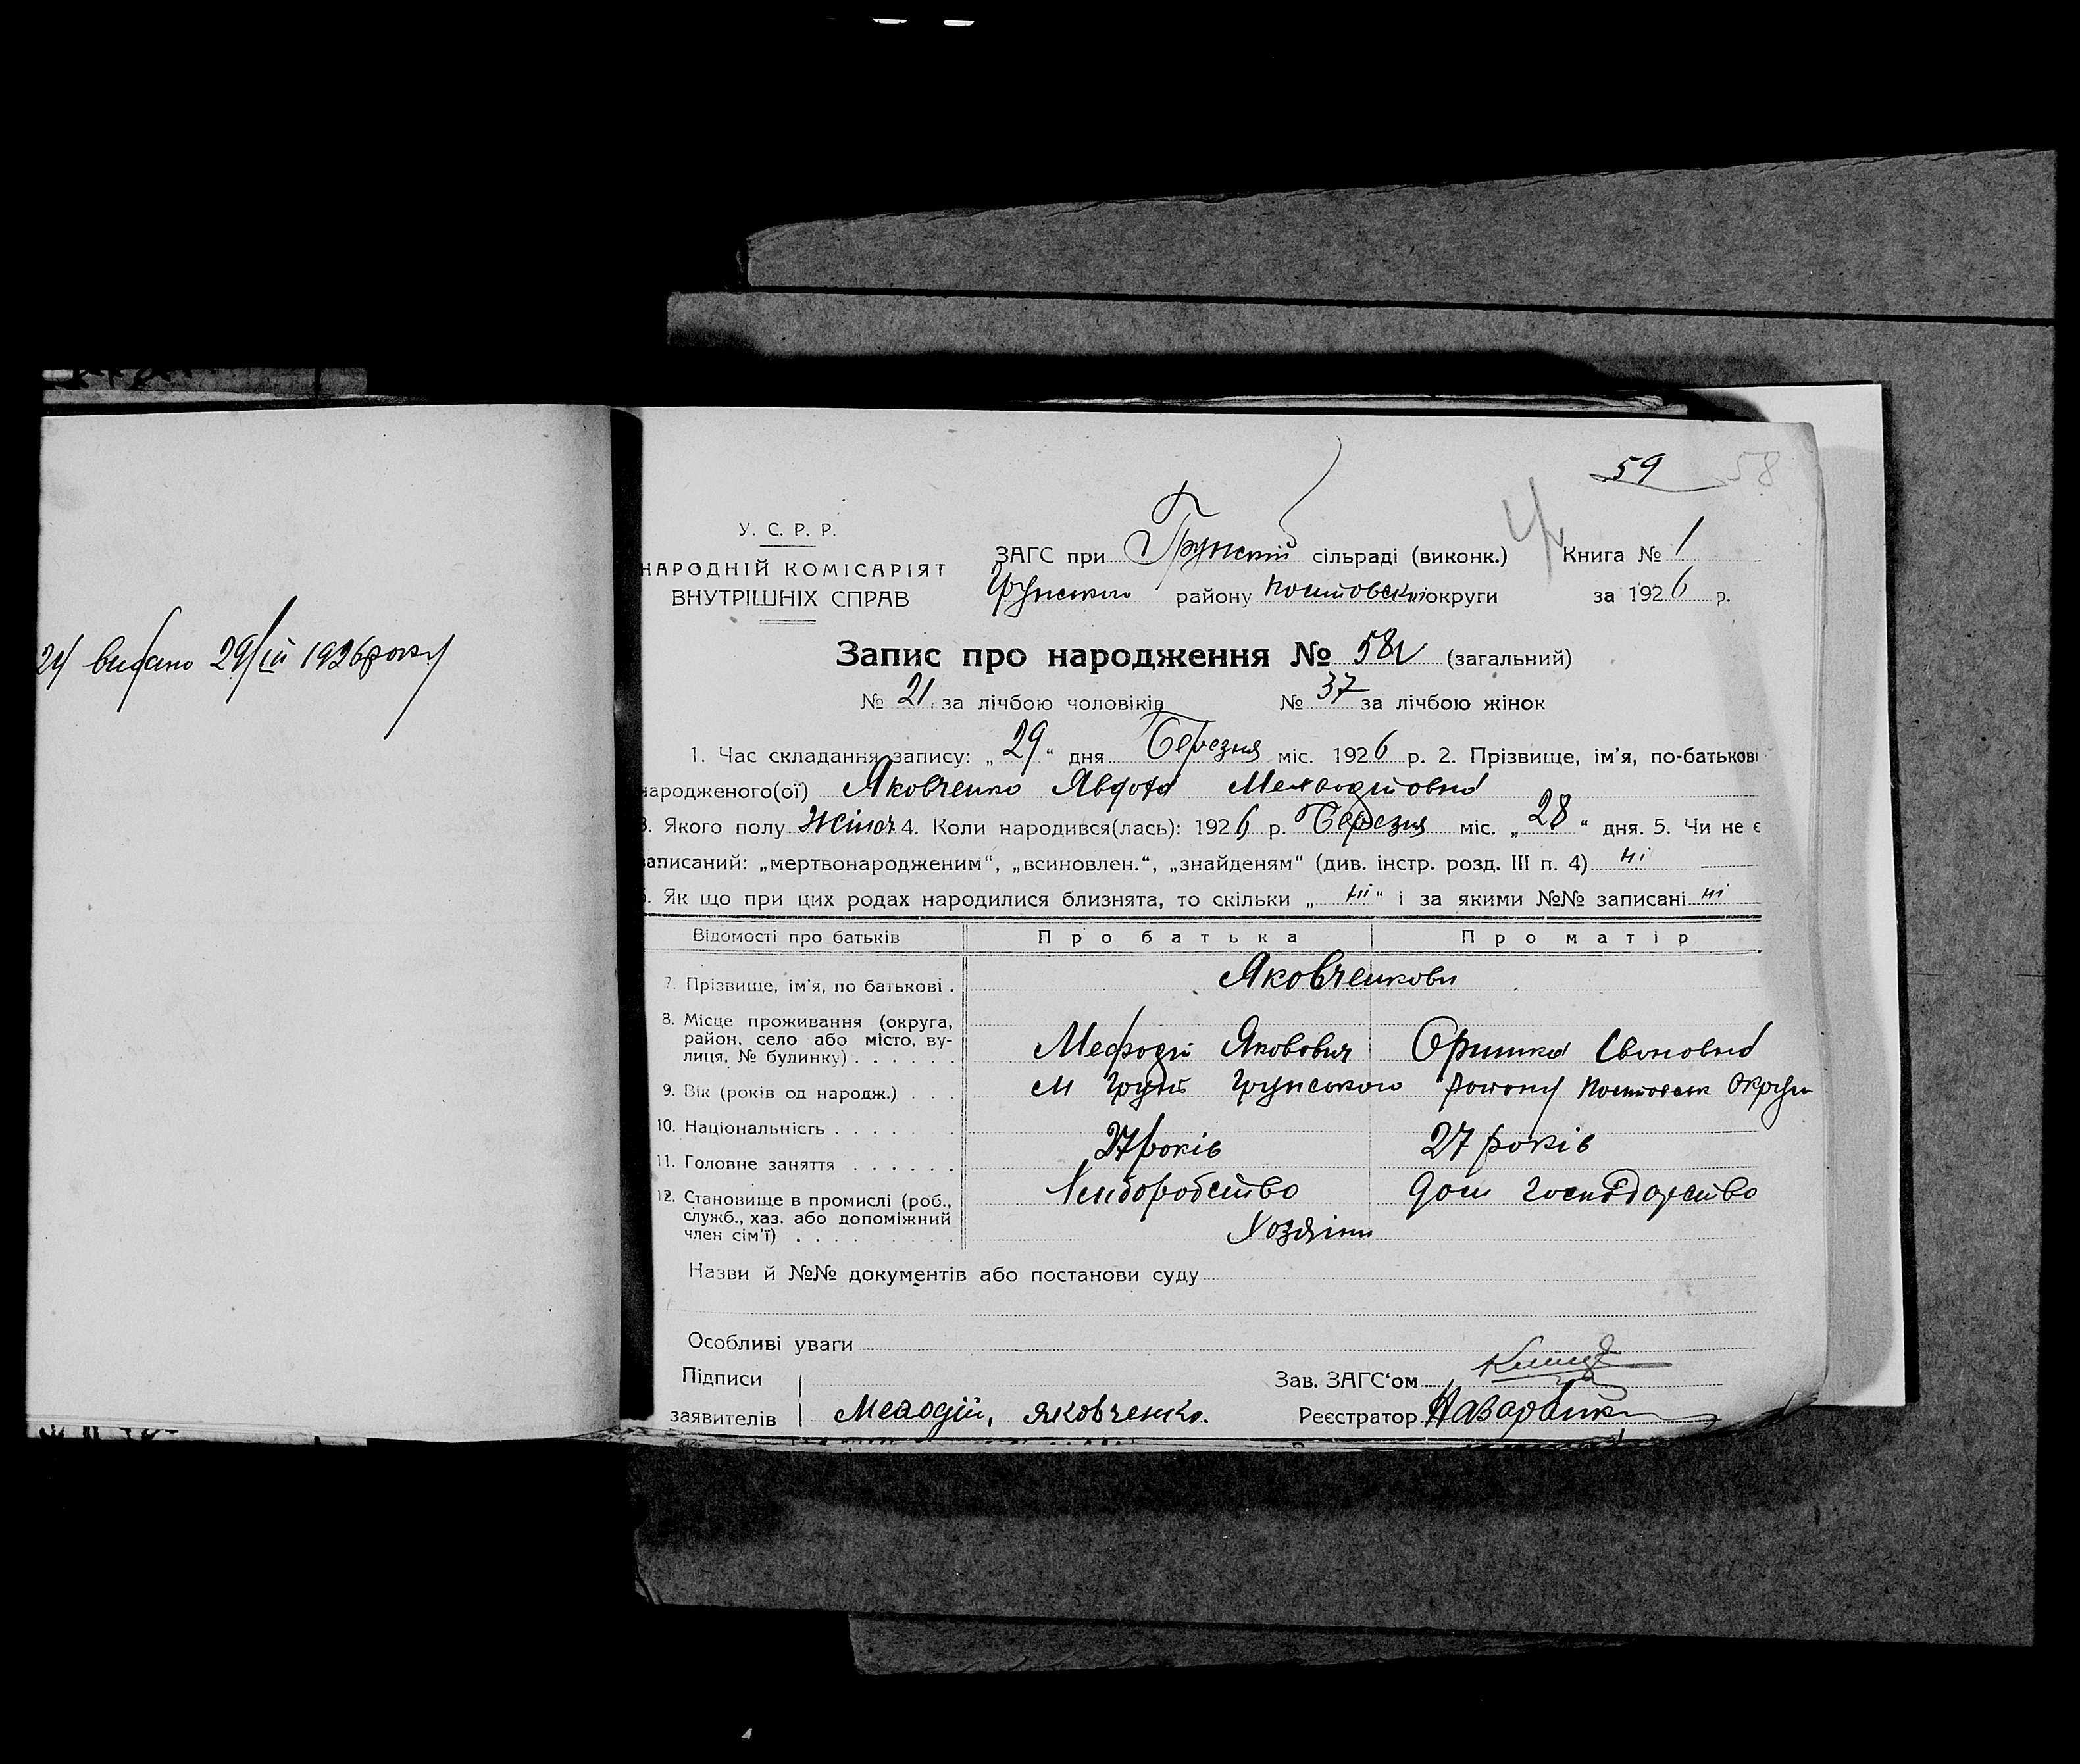 видано 29/III 1926 року
59 58
У. С. Р. Р.
НАРОДНІЙ КОМІСАРІЯТ
ВНУТРІШНІХ СПРАВ
ЗАГС при Грунській сільраді (виконк.)
Грунського району округи
Книга № 1
за 1926 р.
Запис про народження № 58 (загальний)
№ 21 за лічбою чоловіків № 37 за лічбою жінок
1. Час складання запису: „29“ дня Березня міс. 1926 р. 2. Прізвище, ім'я, по-батькові
народженого(ої) Яковченко Явдоха Мефодіовна
3. Якого полу Жіноч 4. Коли народився(лась): 1926 р. Березня міс. „28“ дня. 5. Чи не є
записаний: „мертвонародженим“, „всиновлен.“, „знайденям“ (див. інстр. розд. III п. 4) ні
6. Як що при цих родах народилися близнята, то скільки „ні“ і за якими №№ записані ні
Відомості про батьків Про батька Про матір
7. Прізвище, ім'я, по батькові . Яковченкови
8. Місце проживання (округа,
район, село або місто, ву-
лиця, № будинку) . . . . . . Мефодій Якович Оришка
9. Вік (років од народж.) . . . м Грунь Грунського району Округи
10. Національність . . . . . .
27 років 27 років
11. Головне заняття . . . . . .
Хліборобство дом господарство
12. Становище в промислі (роб.,
служб., хаз. або допоміжний
член сім'ї) . . . . . . Хозяіни
Назви й №№ документів або постанови суду
Особливі уваги
Підписи
заявителів Мефодій, яковченко.
Зав. ЗАГС'ом
Реєстратор